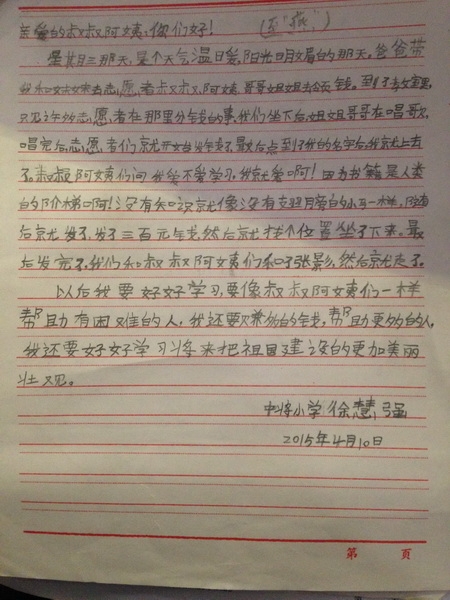 亲爱的叔叔阿姨,你们好!
星期三那天,是个天气温暖,阳光明媚的那天,爸爸带
我和妹妹来去志愿者叔叔,阿姨,哥哥姐姐去领钱。到了教室里,
只见许多志愿者在那里分钱的事,我们坐下后,姐姐哥哥在唱歌,
唱完后志愿者们就开始发钱了,最后点到了我的名字后,我就上去
了。叔叔阿姨们问我爱不爱学习,我就爱啊!因为书籍是人类
的阶梯啊!没有知识就像没有翅膀的小鸟一样,随
后就发了,发了三百元钱,然后就找个位置坐了下来,最
后发完了,我们和叔叔阿姨们和了张影,然后就走了。
以后我要好好学习,要像叔叔阿姨们一样
帮助有困难的人,我还要赚多的钱,帮助更多的人,
我还要好好学习将来把祖国建设的更加美丽
壮观。
小学徐慧强
2015年4月10日
第 页